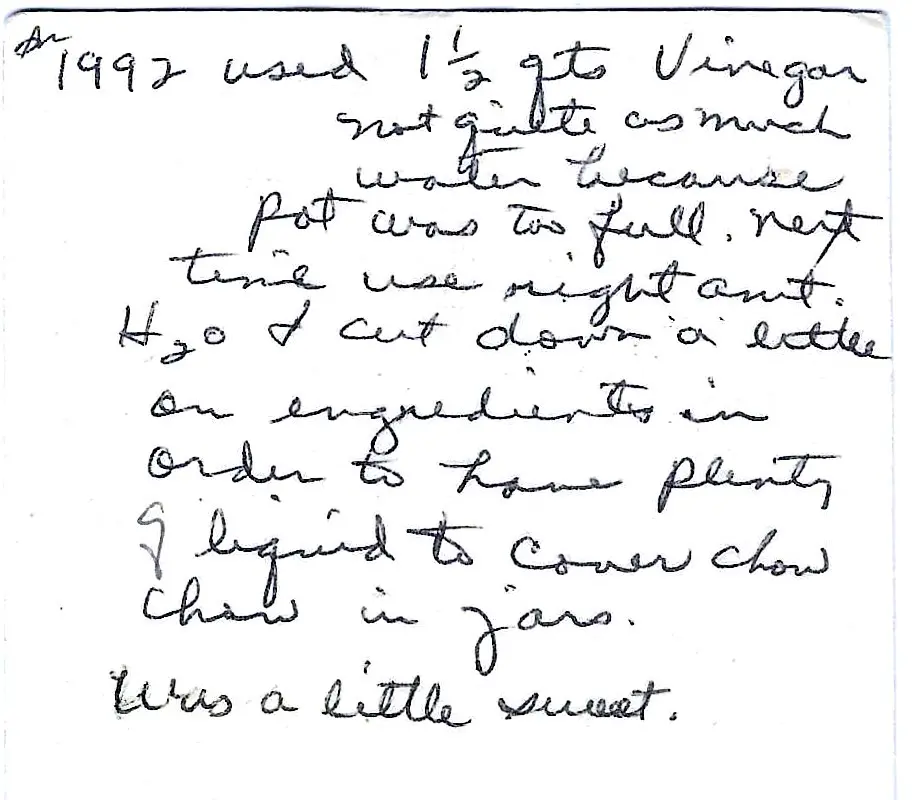 In 1992 used 1 1/2 qts Vinegar
not quite as much
water because
pot was too full. next
time use right amt.
H2O & cut down a little
on engredients in
order to have plenty
of liquid to cover chow
chow in jars.
Was a little sweet.